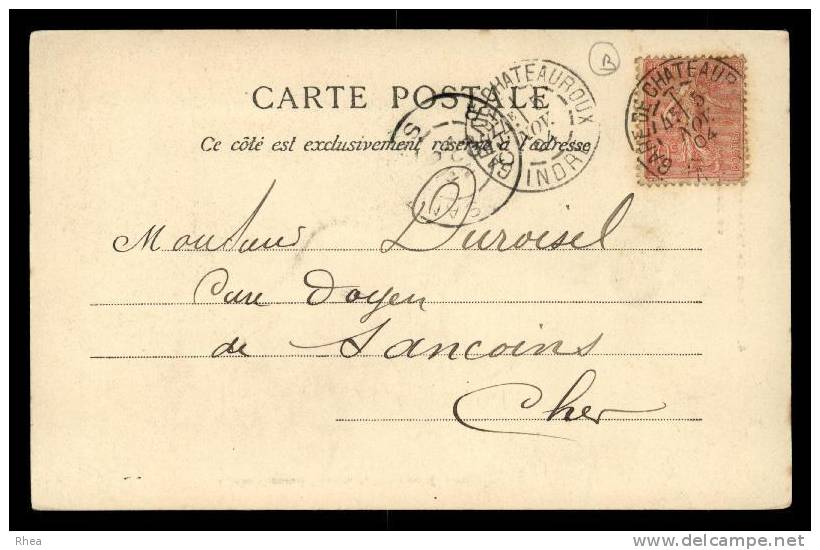 CARTE POSTALE
Ce côté est exclusivement réservé à l'adresse
B
GARE DE CHATEAUROUX
5
NOV.
INDRE
GARE DE CHATEAUR
5
NOV.
04
Monsieur Duroisel
Curé Doyen
de Sancoins
Cher
Rhea
delcampe.net